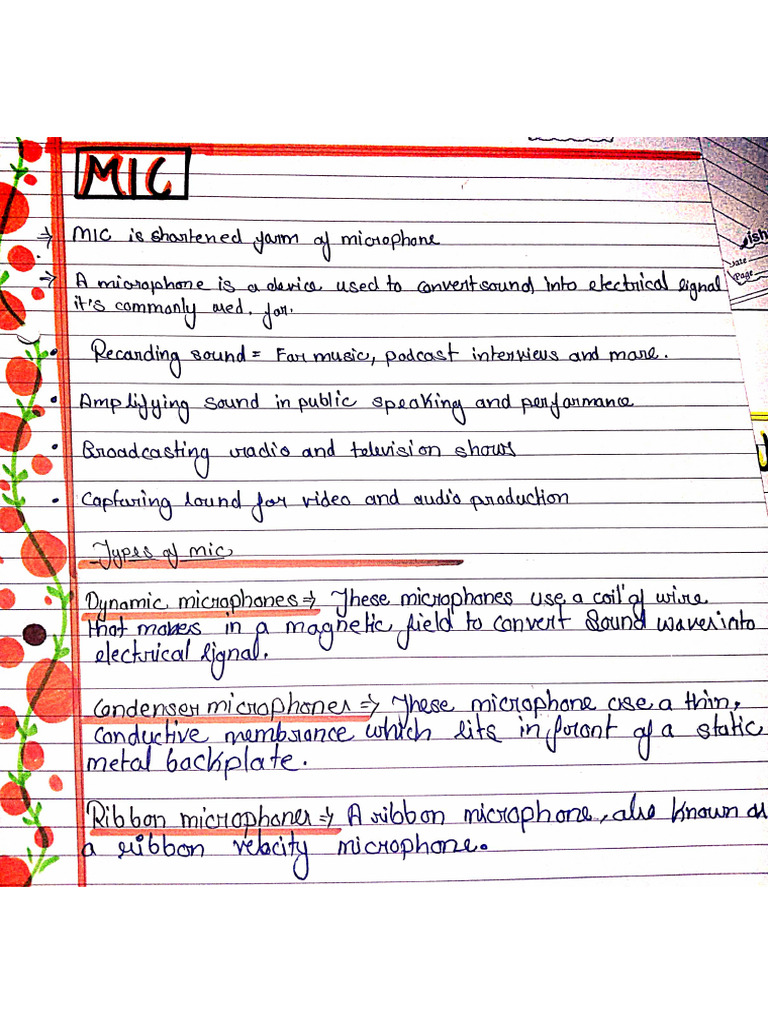 MIC
→ MIC is shortened form of microphone
→ A microphone is a device used to convert sound into electrical signal
it's commonly used. for.
• Recording sound = For music, podcast interviews and more.
• Amplifying sound in public speaking and performance
• Broadcasting radio and television shows
• Capturing sound for video and audio production
Types of mic
Dynamic microphones ⇒ These microphones use a coil of wire
that moves in a magnetic field to convert sound waves into
electrical signal.
Condenser microphones ⇒ These microphone use a thin,
conductive membrance which sits in foront of a static
metal backplate.
Ribbon microphones ⇒ A ribbon microphone, also known as
a ribbon velocity microphone.
ish
Date
Page